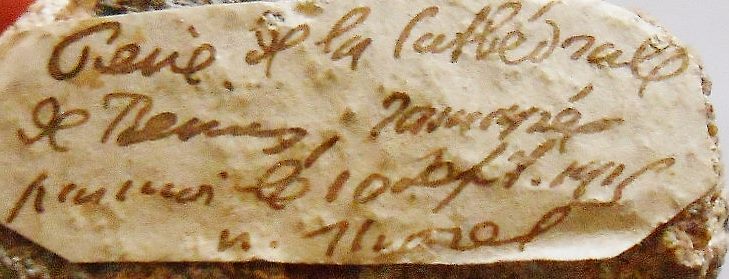 Pierre de la Cathédrale
de Reims, ramassée
par moi le 10 Sept. 1915